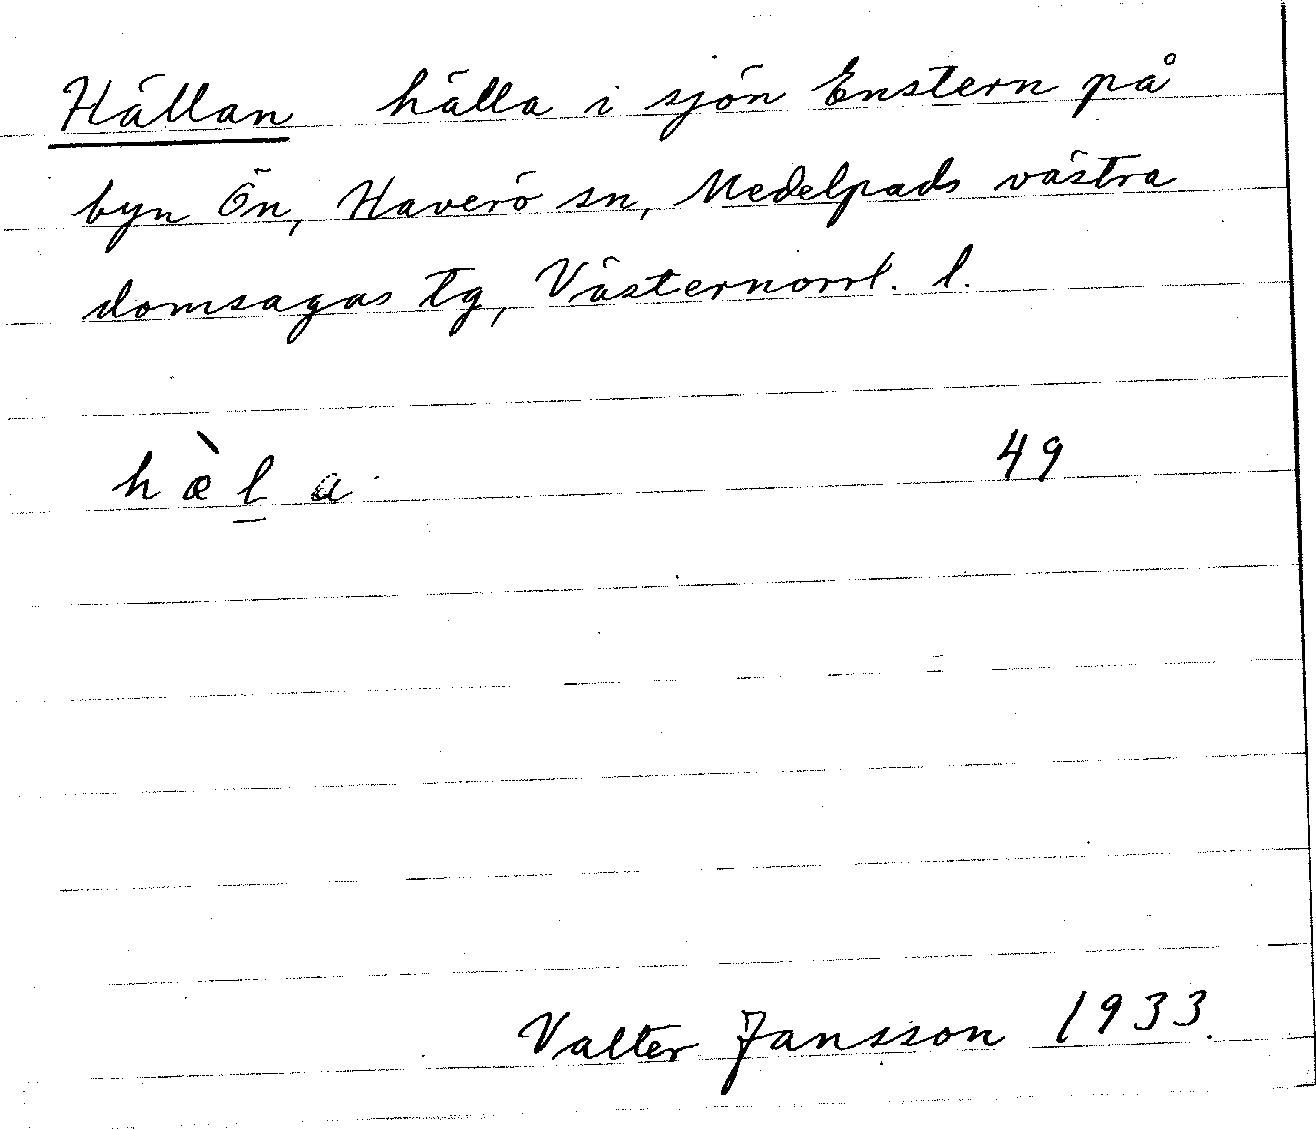 Hällan hälla i sjön Enstern på
byn Ön, Haverö sn, Medelpads västra
domsagas tg, Västernorrl. l.
hæ̀l̲a 49
Valter Jansson 1933.